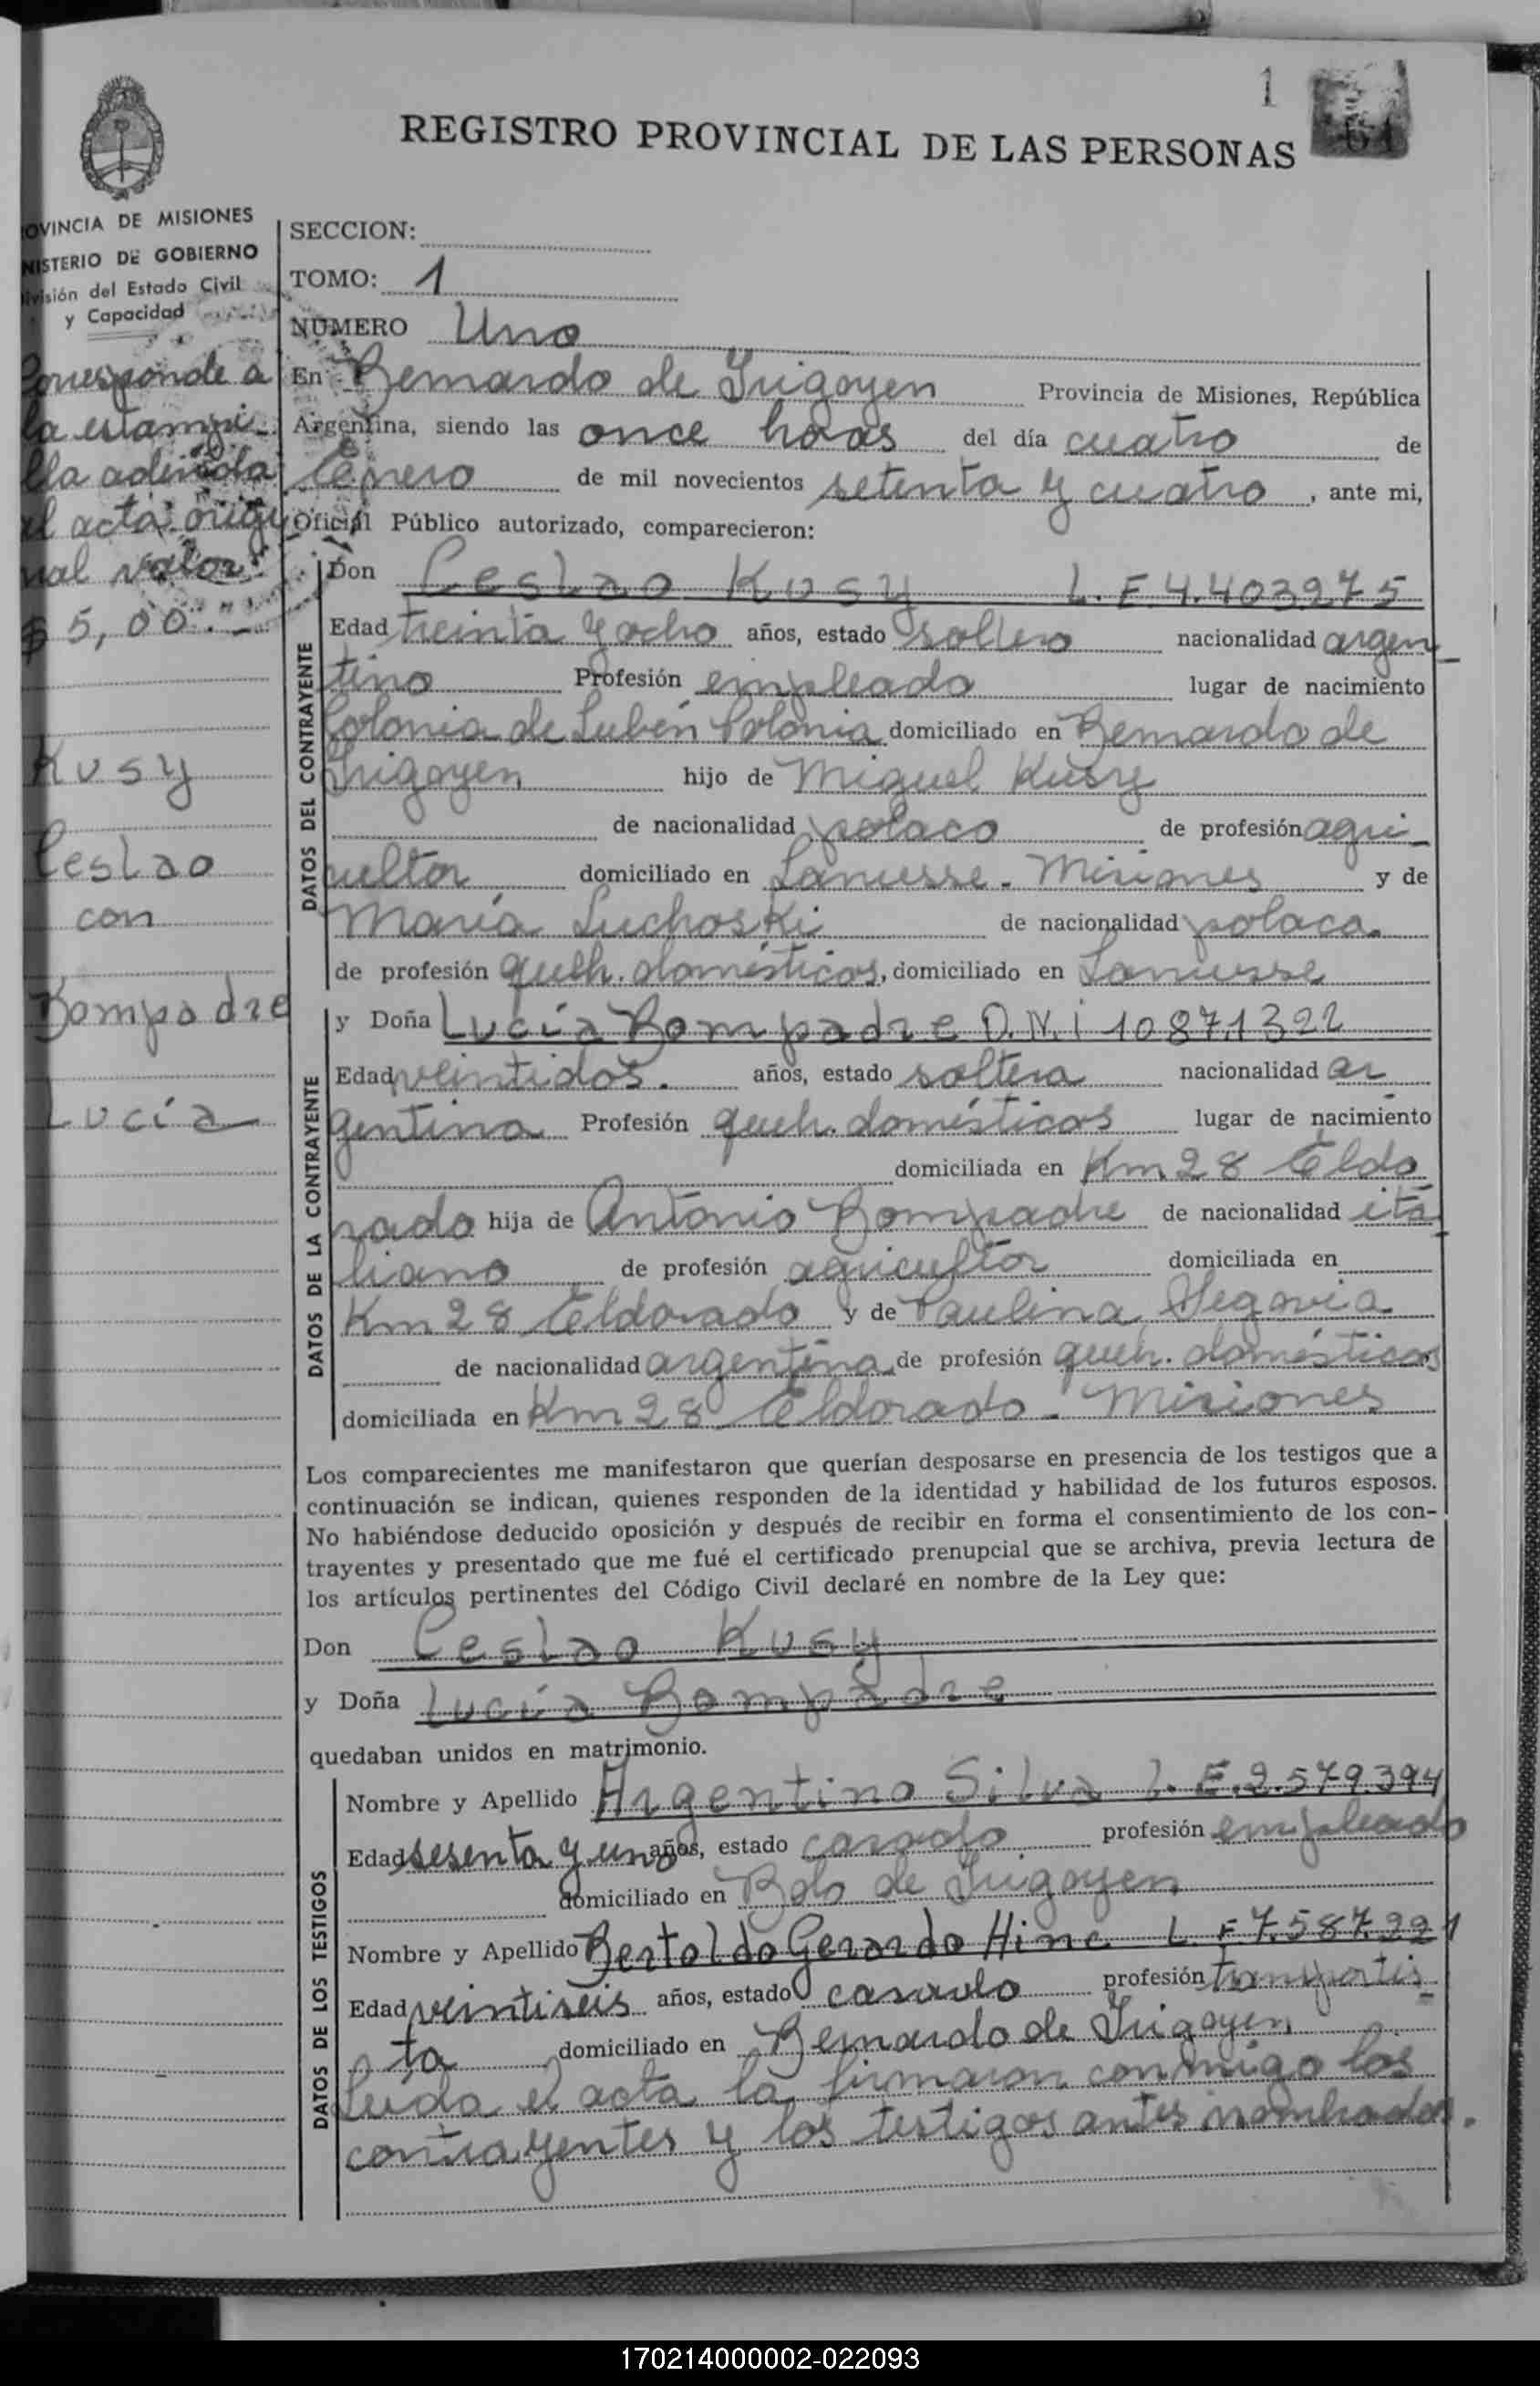 1
REGISTRO PROVINCIAL DE LAS PERSONAS
OVINCIA DE MISIONES
NISTERIO DE GOBIERNO
ivisión del Estado Civil
y Capacidad
Corresponde a
la estampi-
lla adherida
al acta origi
nal valor
$ 5,00.-
Kusy
Ceslao
con
Bompadre
Lucía
SECCION:
TOMO: 1
NUMERO Uno
En Bernardo de Irigoyen Provincia de Misiones, República
Argentina, siendo las once horas del día cuatro de
Enero de mil novecientos setenta y cuatro, ante mi,
Oficial Público autorizado, comparecieron:
DATOS DEL CONTRAYENTE
Don Ceslao Kusy L.E.4.403275
Edad treinta y ocho años, estado soltero nacionalidad argen-
tino Profesión empleado lugar de nacimiento
Colonia de Lubén Polonia domiciliado en Bernardo de
Irigoyen hijo de Miguel Kusy
de nacionalidad polaco de profesión agri-
cultor domiciliado en Lanusse - Misiones y de
María Luchoski de nacionalidad polaca.
de profesión queh. domésticos, domiciliado en Lanusse
DATOS DE LA CONTRAYENTE
y Doña Lucía Bompadre D.N.i 10871322
Edad veintidos. años, estado soltera nacionalidad ar
gentina Profesión queh. domésticos lugar de nacimiento
domiciliada en Km 28 Eldo
rado hija de Antonio Bompadre de nacionalidad ita-
liano de profesión agricultor domiciliada en
Km 28 Eldorado y de Paulina Segovia
de nacionalidad argentina de profesión queh. domésticos
domiciliada en Km 28 Eldorado - Misiones
Los comparecientes me manifestaron que querían desposarse en presencia de los testigos que a
continuación se indican, quienes responden de la identidad y habilidad de los futuros esposos.
No habiéndose deducido oposición y después de recibir en forma el consentimiento de los con-
trayentes y presentado que me fué el certificado prenupcial que se archiva, previa lectura de
los artículos pertinentes del Código Civil declaré en nombre de la Ley que:
Don Ceslao Kusy
y Doña Lucía Bompadre
quedaban unidos en matrimonio.
DATOS DE LOS TESTIGOS
Nombre y Apellido Argentino Silva L.E.2.579.394
Edad sesenta y uno años, estado casado profesión empleado
domiciliado en Bdo de Irigoyen
Nombre y Apellido Bertoldo Gerardo Hinc L.E 7.587.221
Edad veintiseis años, estado casado profesión transportis-
ta domiciliado en Bernardo de Irigoyen
Leída el acta la firmaron conmigo los
contrayentes y los testigos antes nombrados.
170214000002-022093